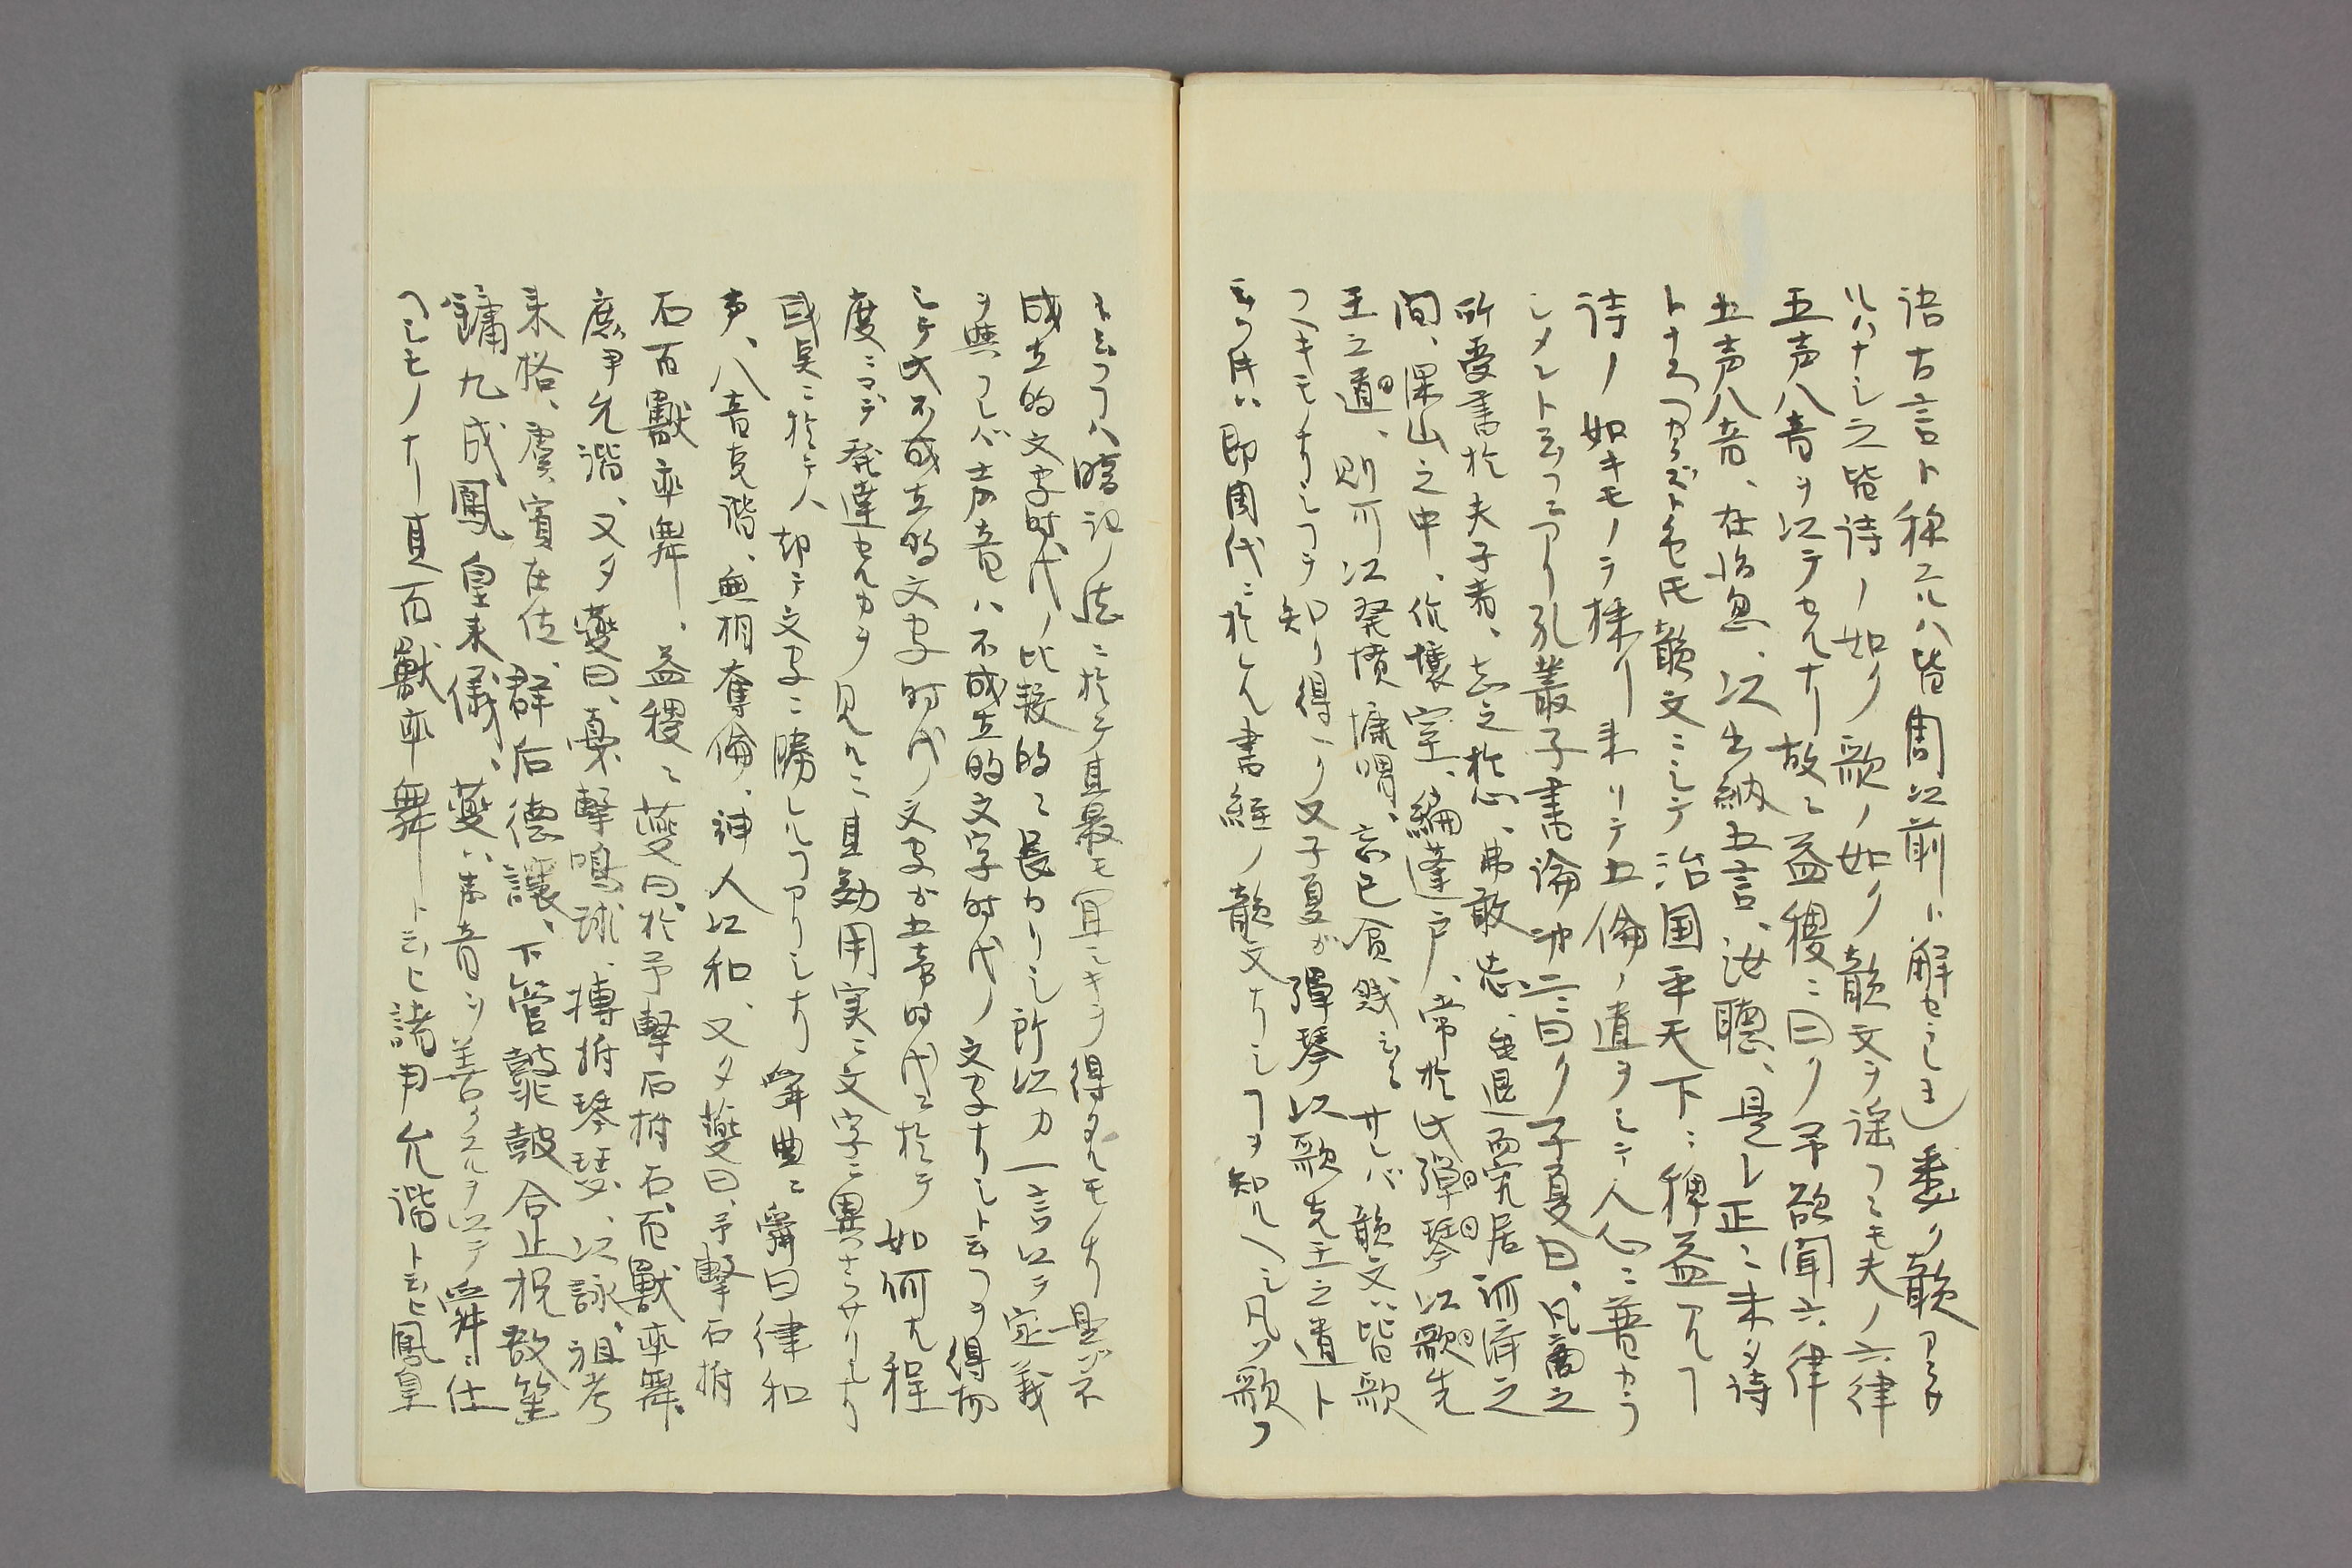 語古言ト称スルハ皆周以前ニ解セラレヨ)悉ク韻アラサ
ルハナシ之皆詩ノ如ク歌ノ如ク韻文ヲ謡フニモ夫ノ六律
五声八音ヲ以テセルナリ故ニ益稷ニ曰ク予欲聞六律
五声八音、在治忽、以出納五言、汝聴、是レ正ニ未タ詩
トナラズト雖氏韻文ニシテ治国平天下ニ稗益アルヿ
詩ノ如キモノヲ採リ来リテ五倫ノ道ヲシテ人心ニ普カラ
シメント云フニアリ孔叢子書論
所受書於夫子者、志之於心、弗敢忘、雖退而究居河済之
間、深山之中、作壌室、編蓬戸、常於此弾琴以歌先
王之道、則可以発憤慷喟、忘己貧賎 サレバ韻文ハ皆歌
フヘキモノナリシヿヲ知リ得ヘク又子夏ガ弾琴以歌先王之道ト
云フ氏ハ即周代ニ於ケル書経ノ韻文ナリシヿヲ知ルヘシ凡ソ歌フ
ト云フヿハ暗記ノ法ニ於テ其最モ宜シキヲ得タルモノナリ是ガ不
成立的文字時代ノ比較的ニ長カリシ所以カ一言以テ定義
ヲ與フレバ声音ハ不成立的文字時代ノ文字ナリシト云フヲ得ヘ
シテ此不成立的文字時代ノ文字ガ五帝時代ニ於テ如何ナル程
度ニマデ発達セルカヲ見ルニ其効用実ニ文字ニ異ナラサリシナリ
或点ニ於テハ却テ文字ニ勝レルヿアリシナリ舜典ニ舜曰律和
声、八音克諧、無相奪倫、神人以和、又タ夔曰、予撃石拊
石百獣率舞、益稷ニ夔曰、於予撃石拊石、百獣率舞、
庶尹允諧、又タ夔曰、戛撃鳴球、搏拊琴瑟、以詠、祖考
来格、虞賓在位、群后徳譲、下管鼗鼓合止柷敔笙
鏞九成鳳皇来儀、夔ハ声音ヲ善クスルヲ以テ舜ニ仕
ヘシモノナリ其百獣率舞ト云ヒ諸尹允諧ト云ヒ鳳皇